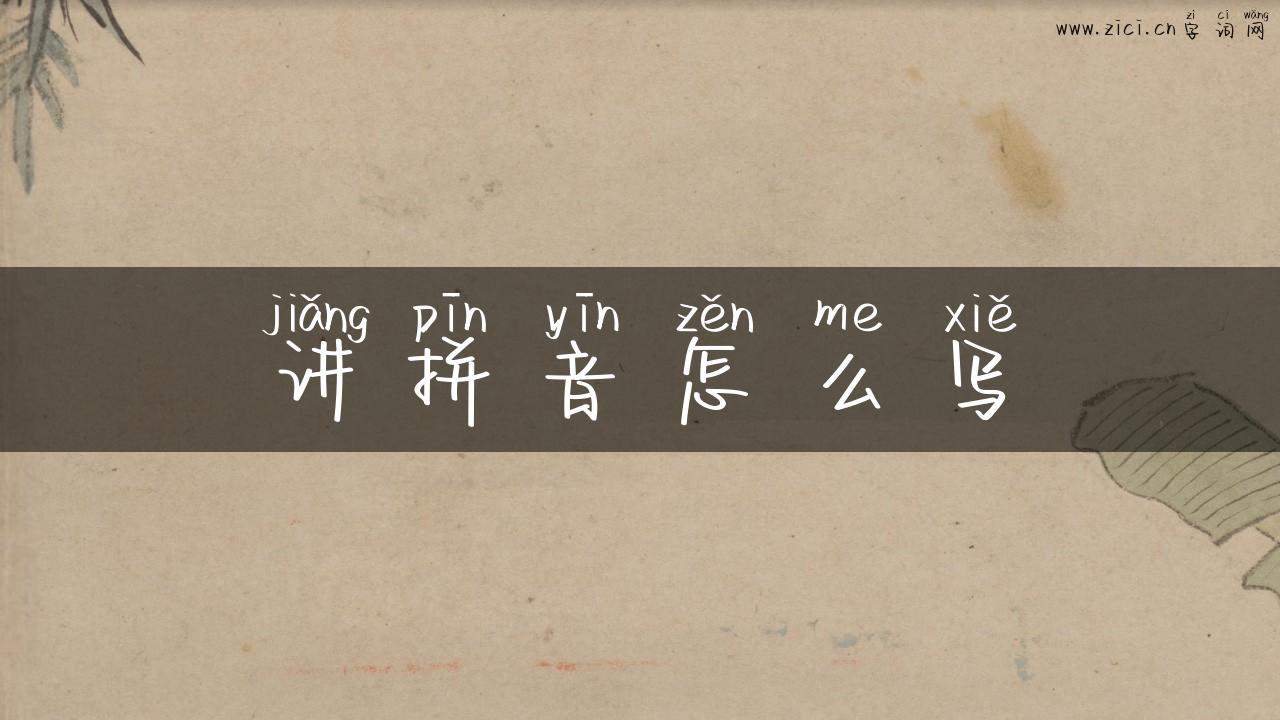 zì cí wǎng
www.zici.cn 字词网
jiǎng pīn yīn zěn me xiě
讲拼音怎么写